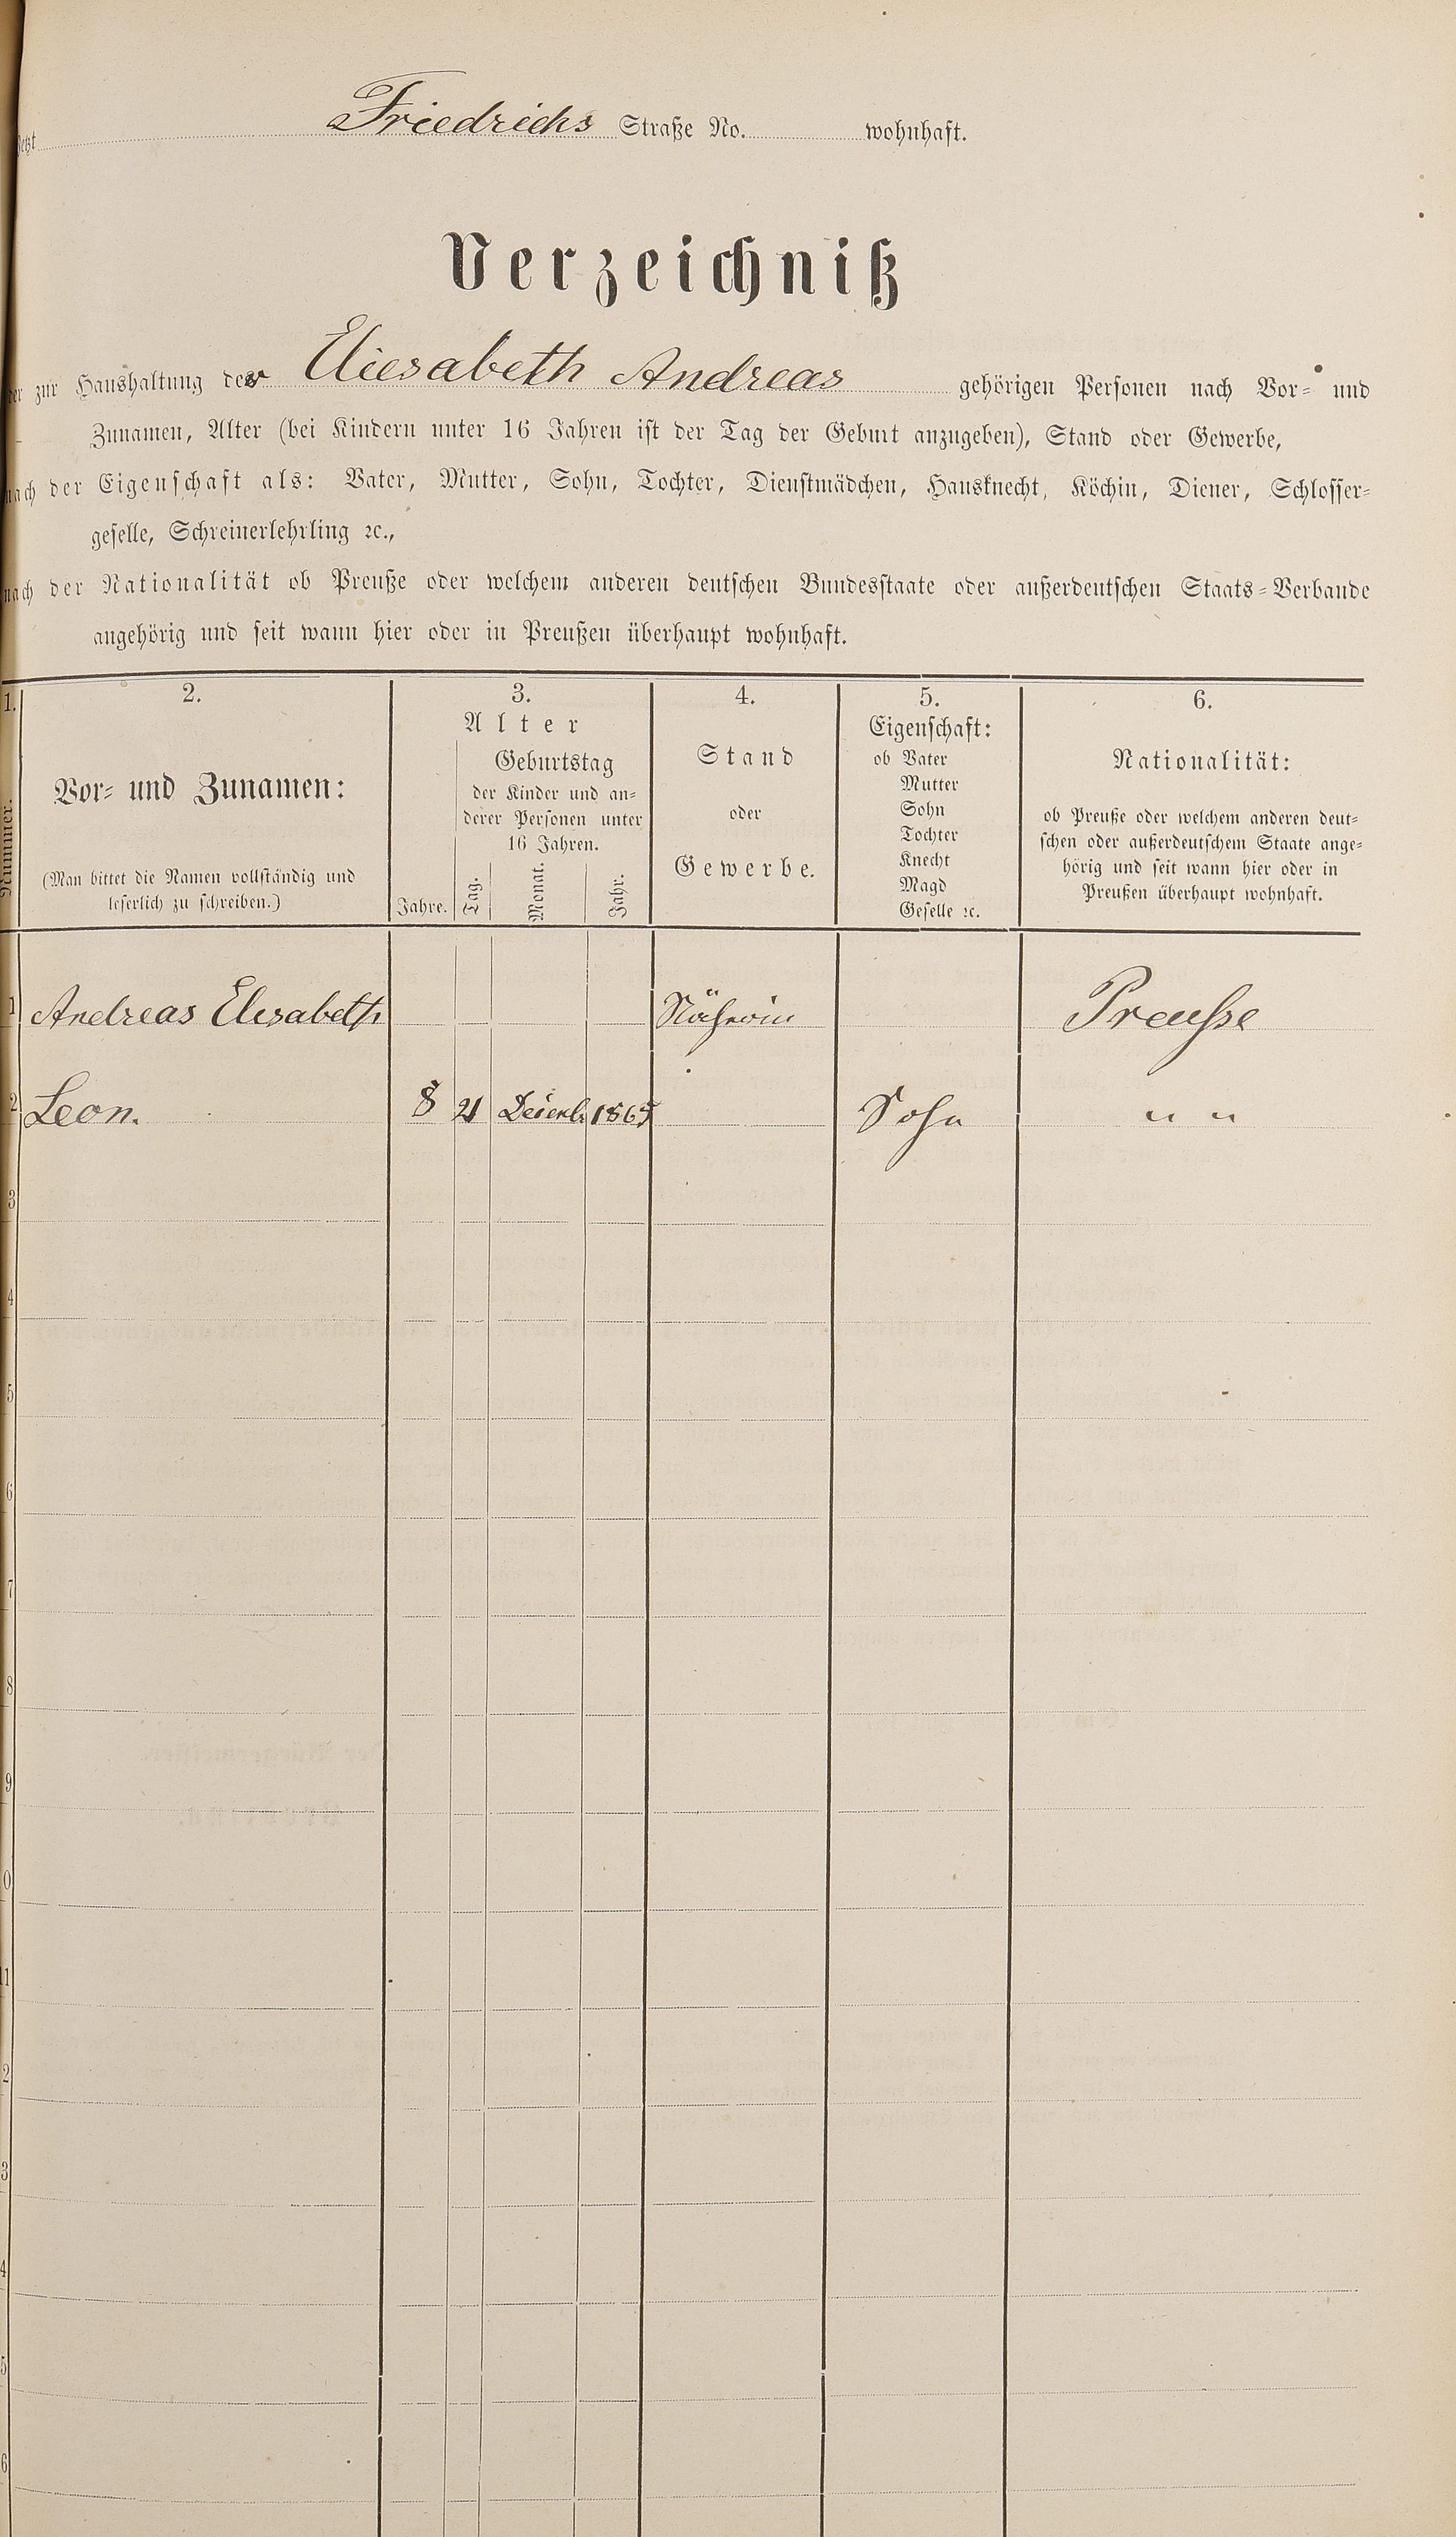 jetzt Friedrichs Straße No. wohnhaft.
Verzeichniß
der zur Haushaltung der Eliesabeth Andreas gehörigen Personen nach Vor- und
Zunamen, Alter (bei Kindern unter 16 Jahren ist der Tag der Geburt anzugeben), Stand oder Gewerbe,
nach der Eigenschaft als: Vater, Mutter, Sohn, Tochter, Dienstmädchen, Hausknecht, Köchin, Diener, Schlosser-
geselle, Schreinerlehrling ꝛc.,
nach der Nationalität ob Preuße oder welchem anderen deutschen Bundesstaate oder außerdeutschen Staats-Verbande
angehörig und seit wann hier oder in Preußen überhaupt wohnhaft.
1. 2. 3. 4. 5. 6.
Nummer.
Vor- und Zunamen:
(Man bittet die Namen vollständig und
leserlich zu schreiben.)
Alter
Jahre.
Geburtstag
der Kinder und an-
derer Personen unter
16 Jahren.
Tag. Monat. Jahr.
Stand
oder
Gewerbe.
Eigenschaft:
ob Vater
Mutter
Sohn
Tochter
Knecht
Magd
Geselle ꝛc.
Nationalität:
ob Preuße oder welchem anderen deut-
schen oder außerdeutschem Staate ange-
hörig und seit wann hier oder in
Preußen überhaupt wohnhaft.
1 Andreas Elisabeth Näherin Preusse
2 Leon. 8 21 1865 Sohn " "
3
4
5
6
7
8
9
0
11
2
3
4
5
6